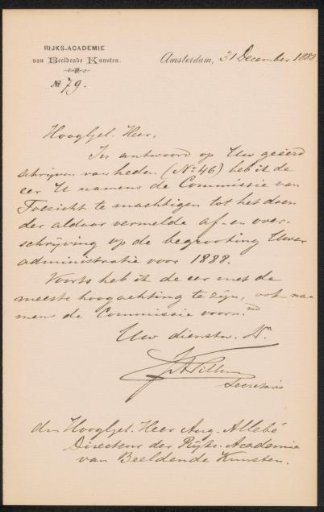 RIJKS-ACADEMIE
van Beeldende Kunsten.
No 79.
Amsterdam, 31 December 188
Hooggel. Heer,
In antwoord op Uw geëerd
schrijven van heden (No 46) heb ik de
eer U namens de Commissie van
Toezicht te machtigen tot het doen
der aldaar vermelde af- en over-
schrijving op de begrooting Uwer
administratie voor 1888.
Voorts heb ik de eer met de
meeste hoogachting te zijn, ook na-
mens de Commissie voornd
Uw dienstw. Dr.
Secretaris
den Hooggel. Heer Aug. Allebé
Directeur der Rijks-Academie
van Beeldende Kunsten.